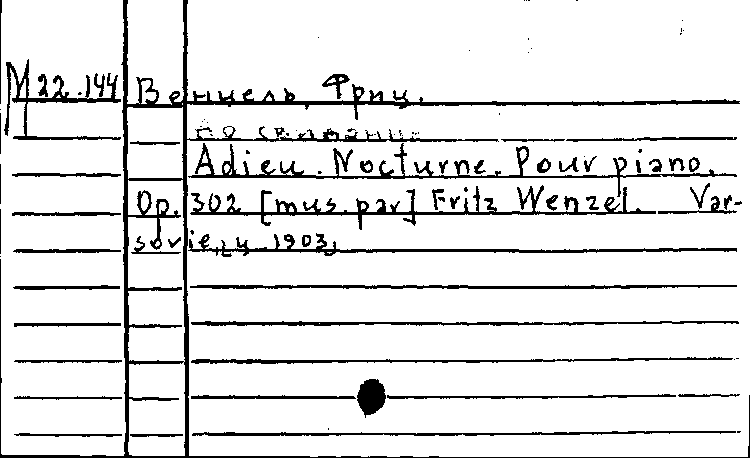 M 22.144 Венцель, Фриц.
До свидания
Adieu. Nocturne. Pour piano.
Op. 302 [mus. par] Fritz Wenzel. Var-
sovie, ц. 1903,